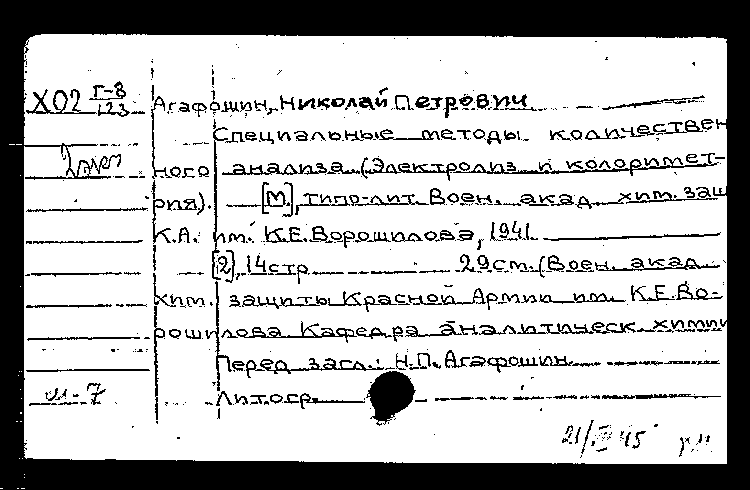 Х02 Г-8
123
Агафошин, Николай Петрович
Специальные методы количествен
2 экз
ного анализа. (Электролиз и колоримет-
рия). — [М.], типо-лит. Воен. акад. хим. защ
К.А. им. К.Е.Ворошилова, 1941.
[2], 14стр. 29см. (Воен. акад.
хим. защиты Красной Армии им. К.Е.Во-
рошилова Кафедра аналитическ. химии
Перед загл.: Н.П. Агафошин.
Литогр.
21/ 45